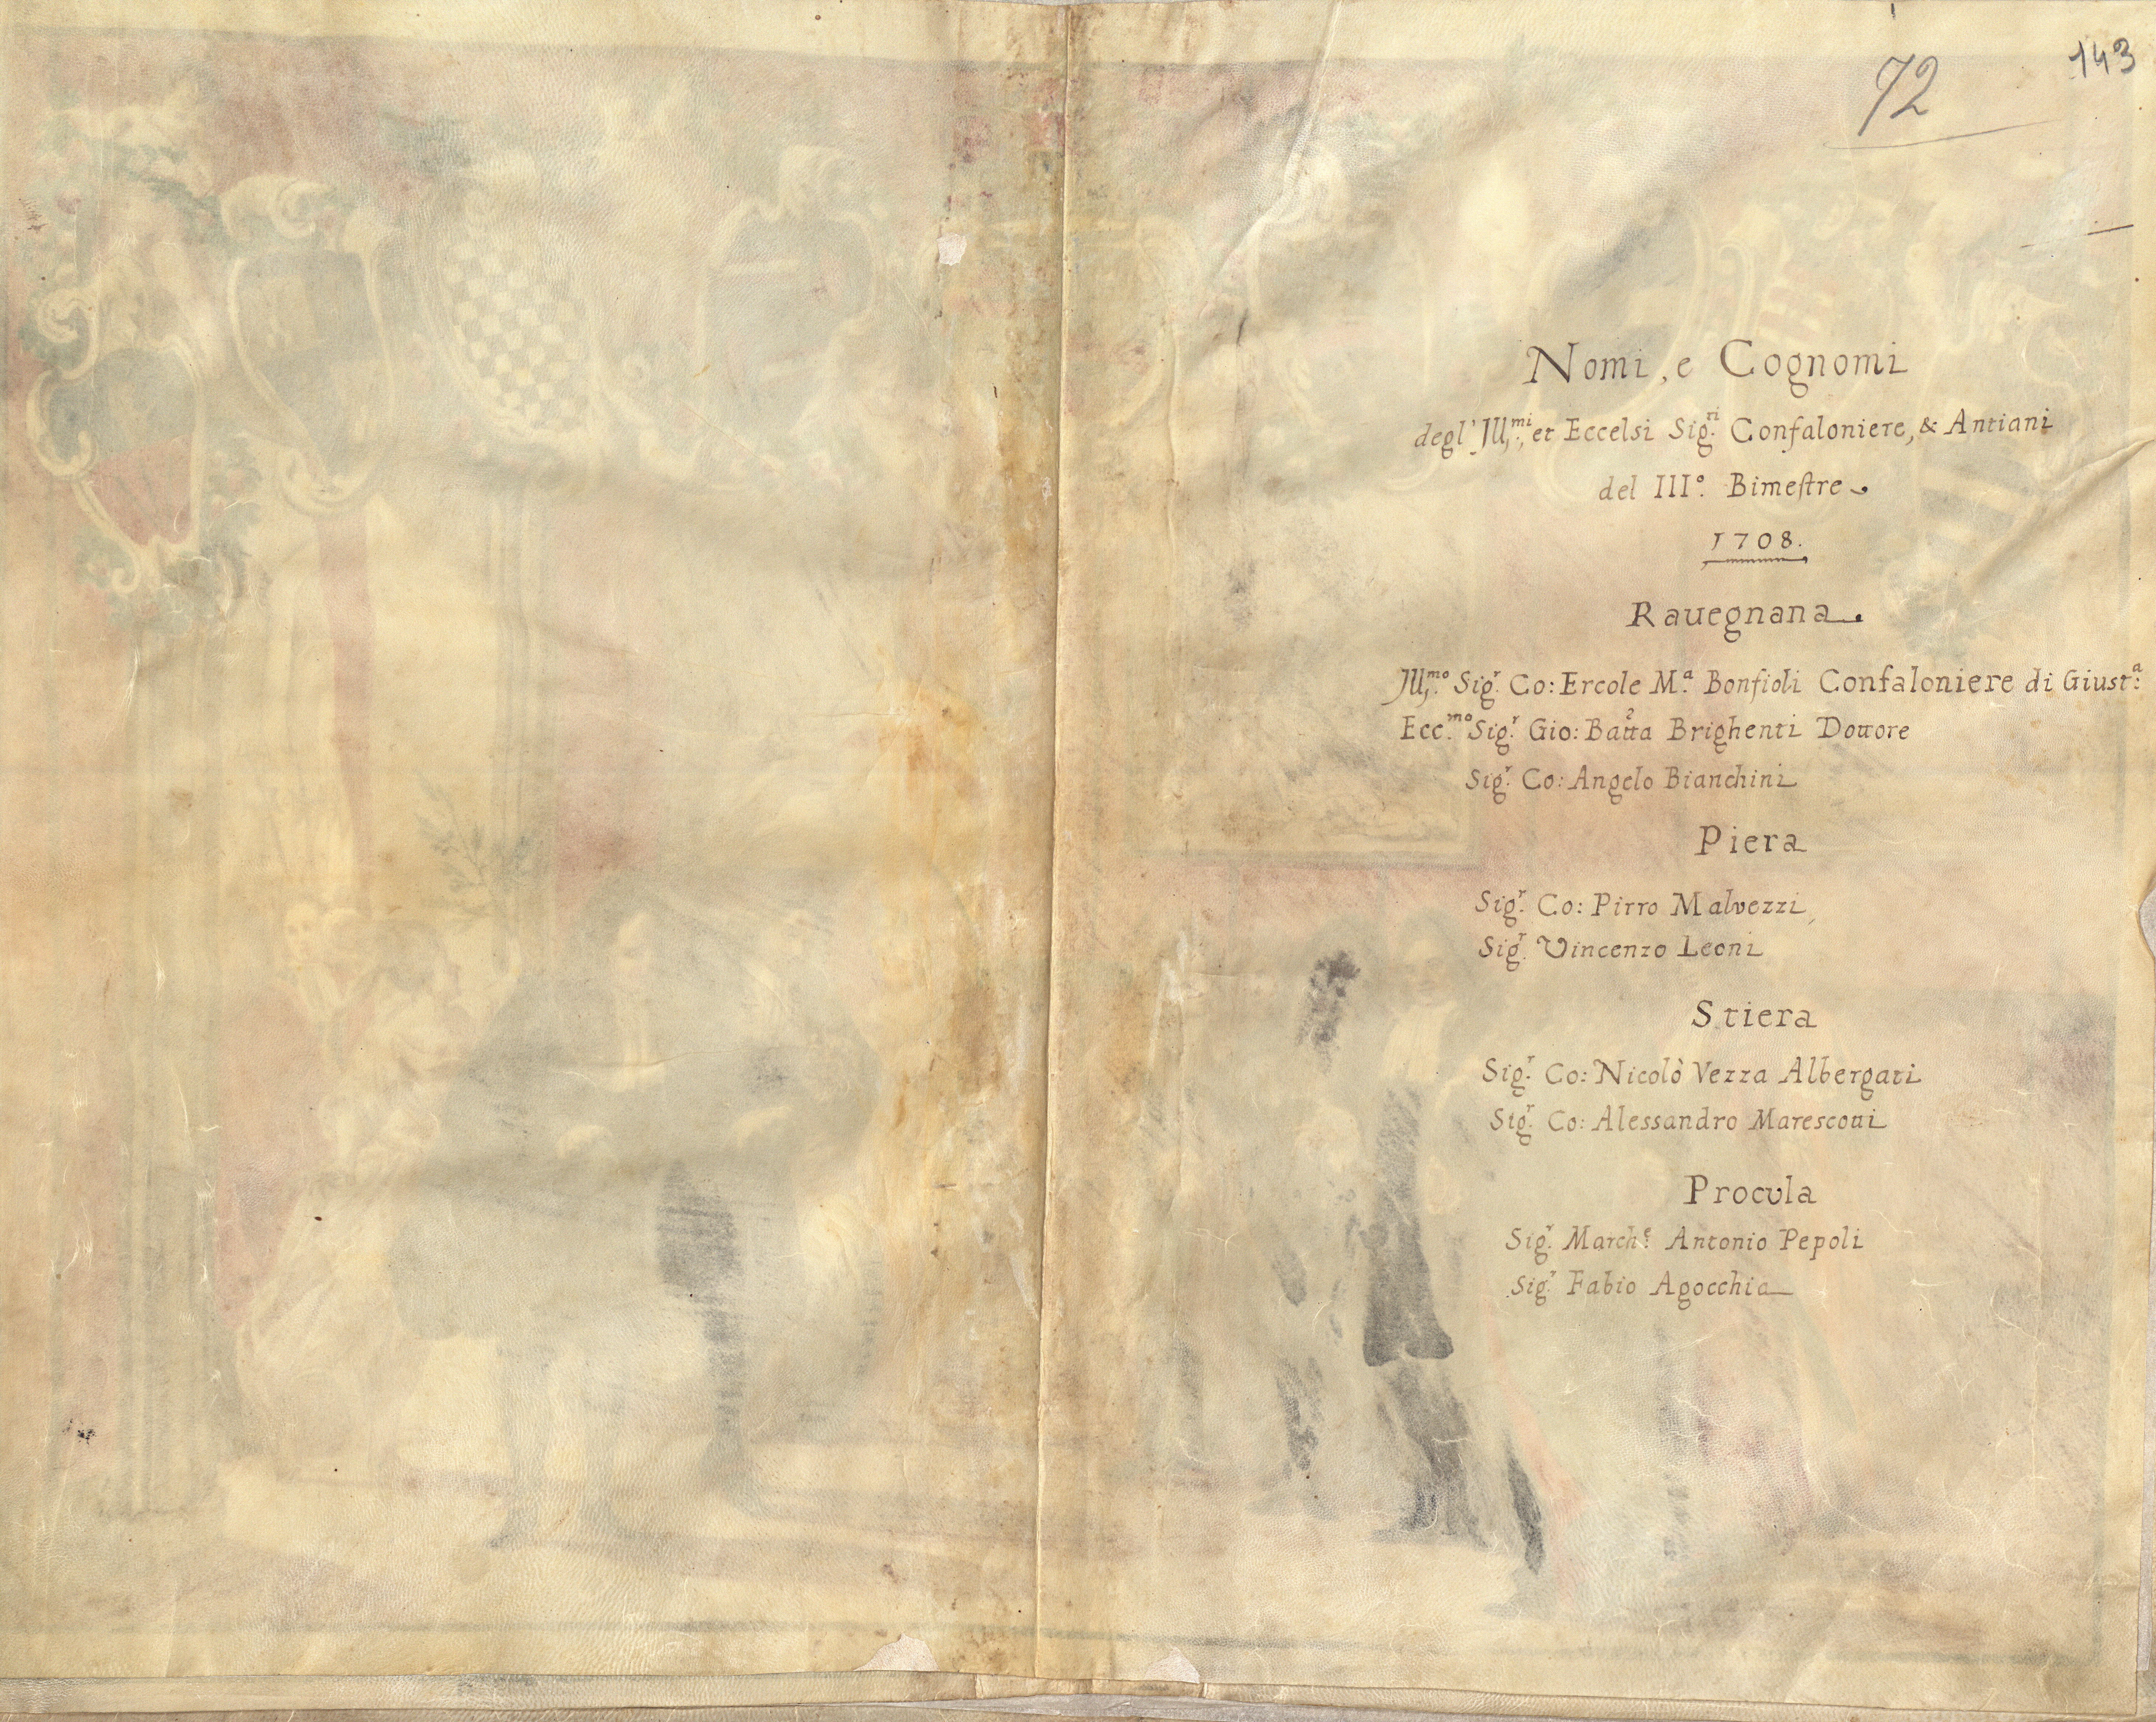 143
72
Nomi, e Cognomi
degl' Ill.mi, et Eccelsi Sig.ri Confaloniere, & Antiani
del III.° Bimeſtre
1708.
Rauegnana
Ill.mo Sig.r Co: Ercole M.a Bonfioli Confaloniere di Giust.a
Ecc.mo Sig.r Gio: Batta Brighenti Dottore
Sig.r Co: Angelo Bianchini
Piera
Sig.r Co: Pirro Malvezzi
Sig.r Vincenzo Leoni
Stiera
Sig.r Co: Nicolò Vezza Albergati
Sig.r Co: Alessandro Marescotti
Procula
Sig.r March.e Antonio Pepoli
Sig.r Fabio Agocchia